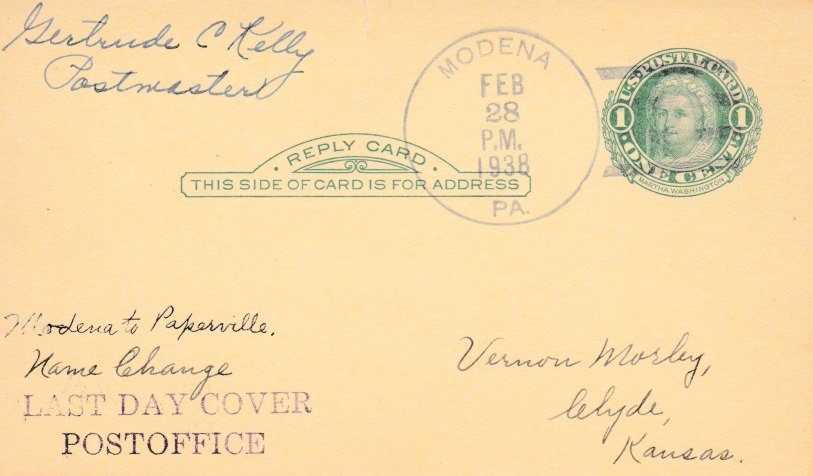 Gertrude C Kelly
Postmaster
MODENA
FEB
28
P.M.
1938
PA.
U.S. POSTAL CARD
1 1
ONE CENT
MARTHA WASHINGTON
· REPLY CARD ·
THIS SIDE OF CARD IS FOR ADDRESS
Modena to Paperville.
Name Change
LAST DAY COVER
POSTOFFICE
Vernon Morley,
Clyde,
Kansas.